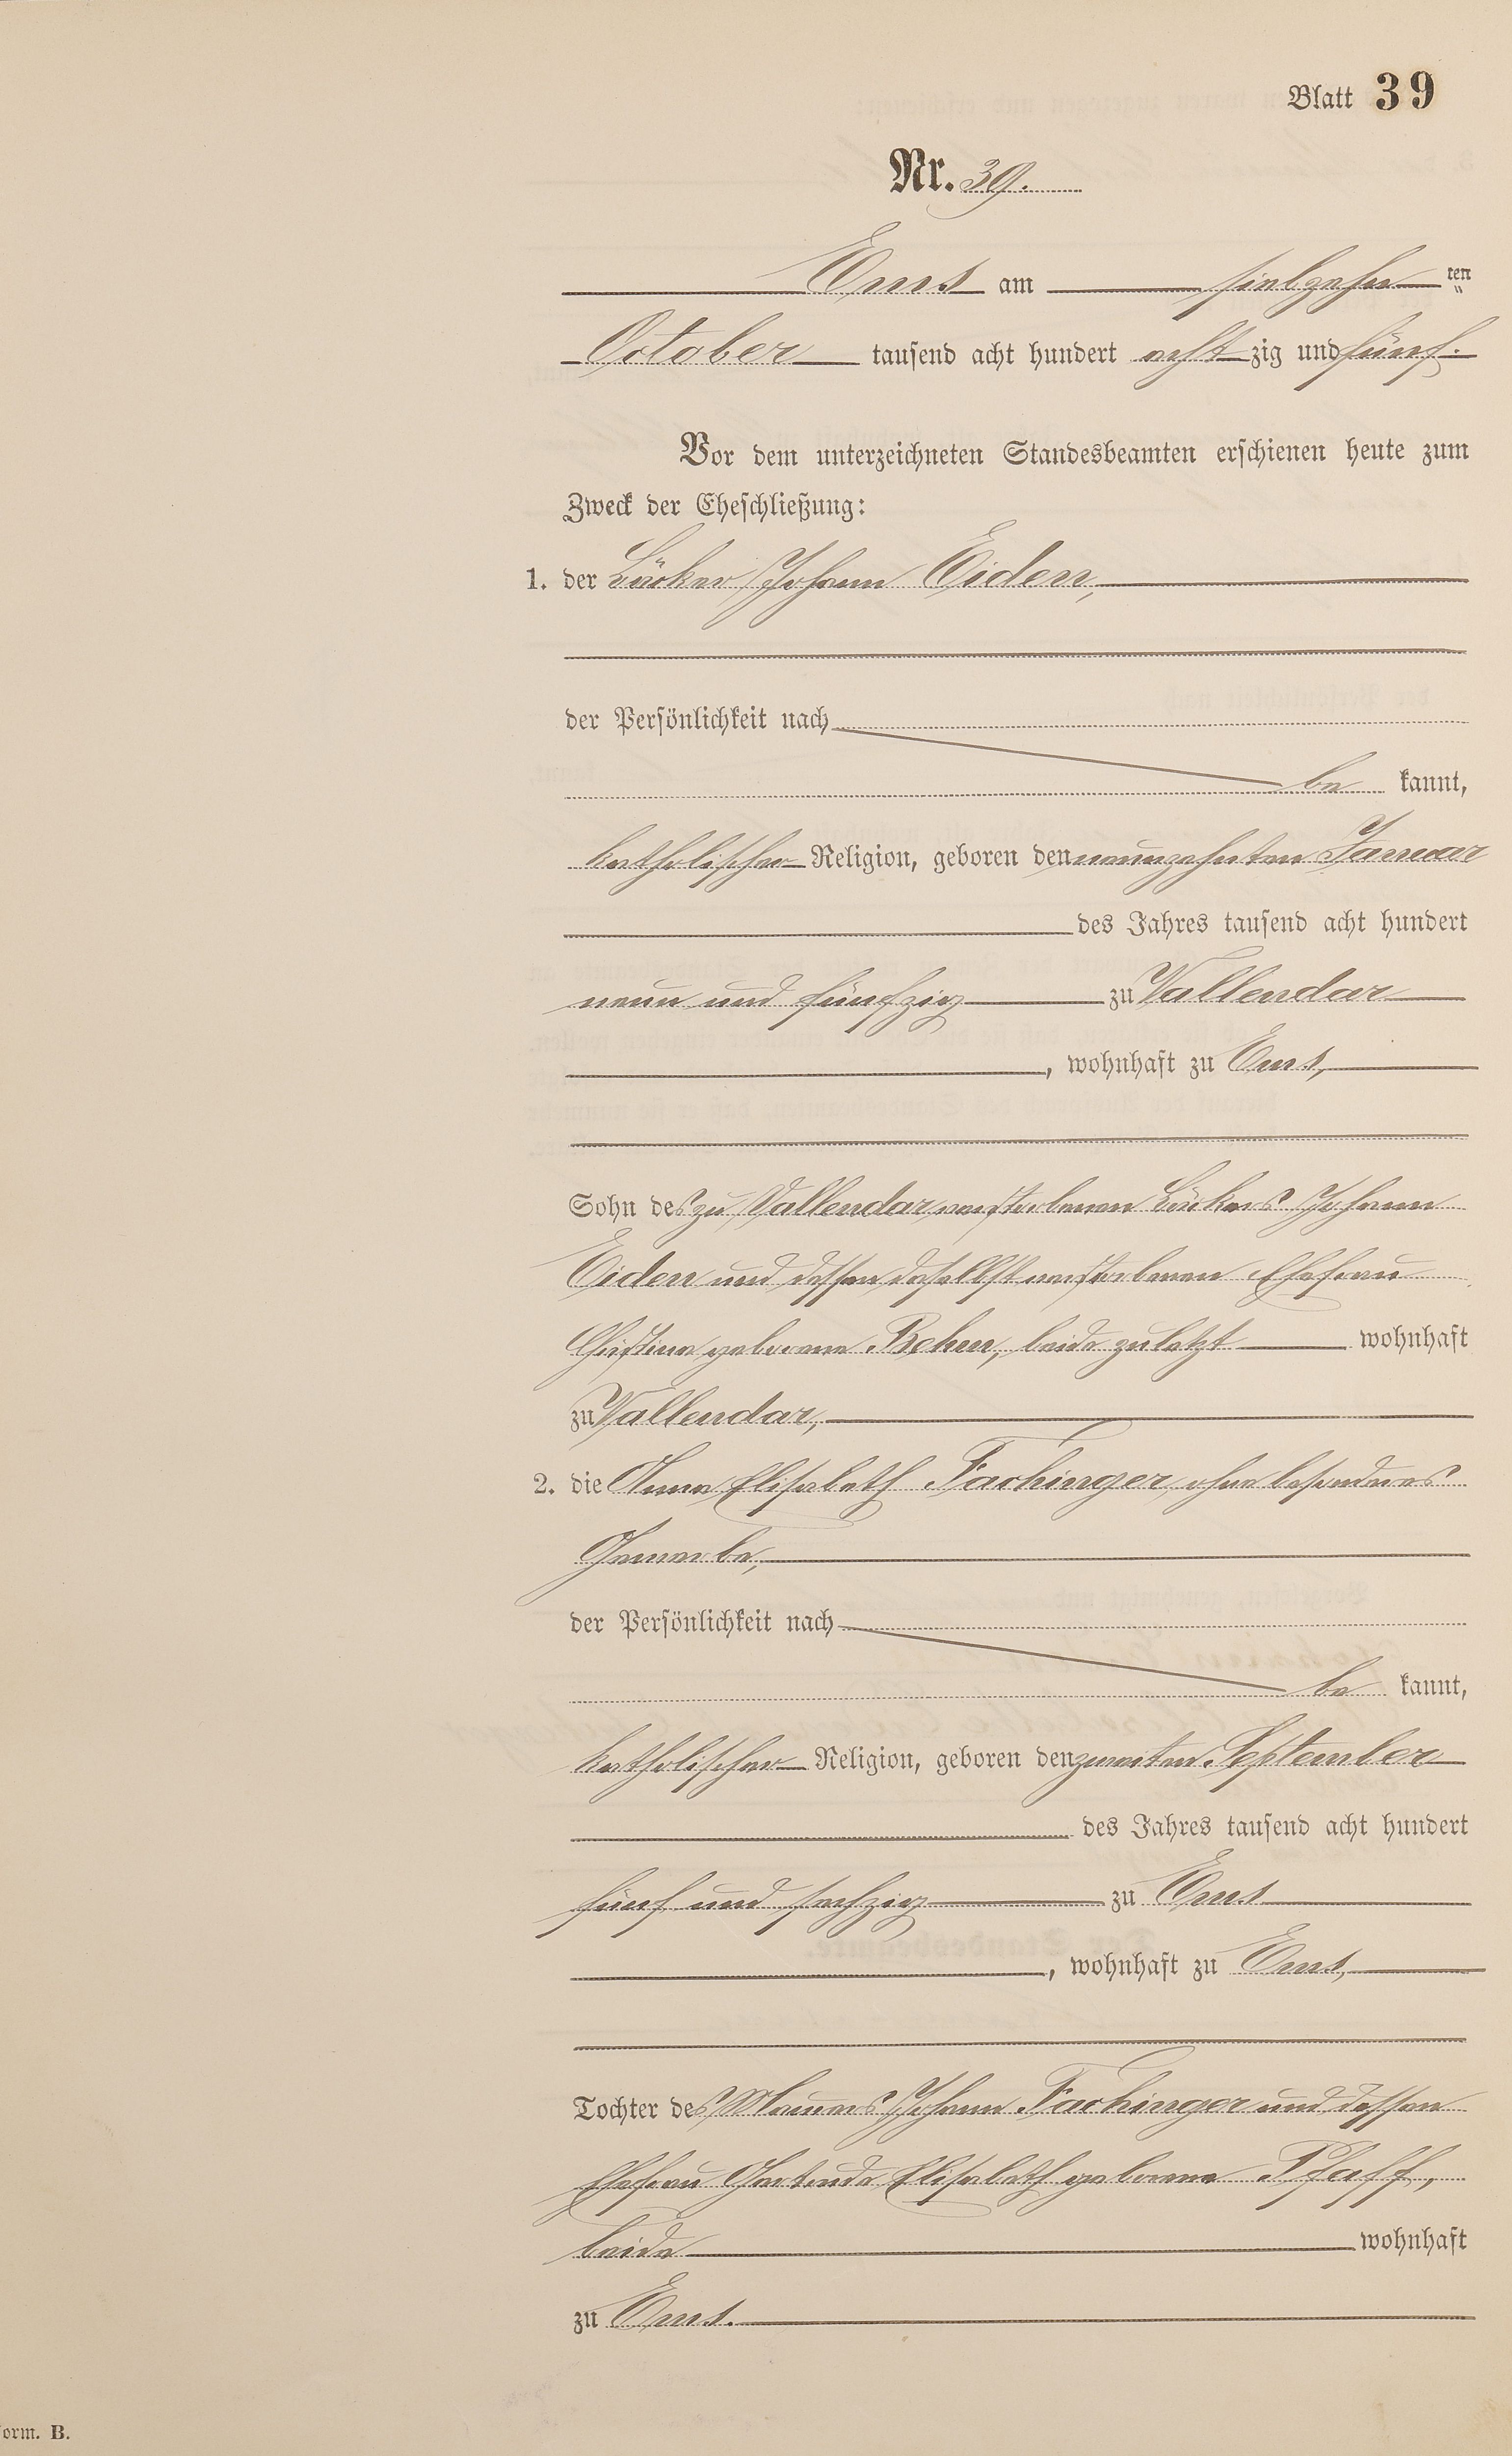 Blatt 39
Nr. 39.
Ems am siebzehn ten
October tausend acht hundert acht zig und fünf.
Vor dem unterzeichneten Standesbeamten erschienen heute zum
Zweck der Eheschließung:
1. der Bäcker Johann Eiden,
der Persönlichkeit nach
be kannt,
katholischer Religion, geboren den neunzehnten Januar
des Jahres tausend acht hundert
neun und fünfzig zu Vallendar
, wohnhaft zu Ems,
Sohn des zu Vallendar verstorbenen Bäckers Johann
Eiden und dessen daselbst verstorbenen Ehefrau
Christina geborene Behen, beide zuletzt wohnhaft
zu Vallendar,
2. die Anna Elisabeth Fachinger, ohne besonderes
Gewerbe,
der Persönlichkeit nach
be kannt,
katholischer Religion, geboren den zweiten September
des Jahres tausend acht hundert
fünf und sechzig zu Ems
, wohnhaft zu Ems,
Tochter des Maurers Johann Fachinger und dessen
Ehefrau Gertrude Elisabeth geborene Pfaff,
beide wohnhaft
zu Ems.
orm. B.